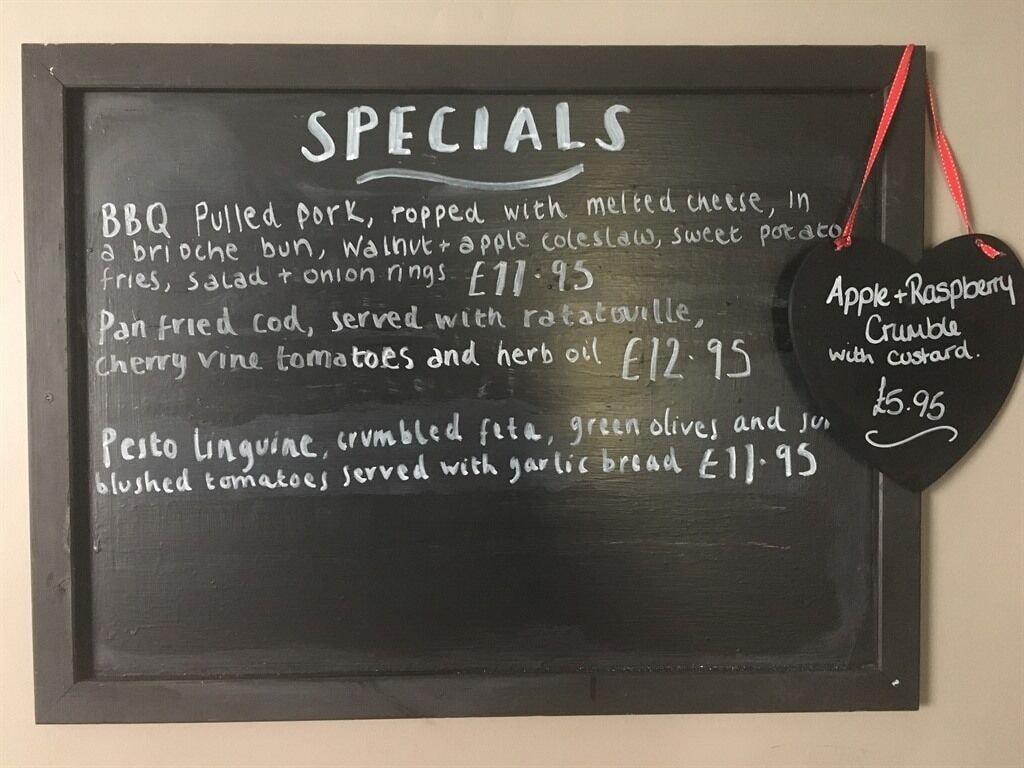 SPECIALS
BBQ Pulled pork, ropped with melted cheese, in
a brioche bun, walnut + apple coleslaw, sweet potato
fries, salad + onion rings £11.95
Pan fried cod, served with ratatouille,
cherry vine tomatoes and herb oil £12.95
Pesto linguine, crumbled feta, green olives and
blushed tomatoes served with garlic bread £11.95
Apple + Raspberry
Crumble
with custard.
£5.95